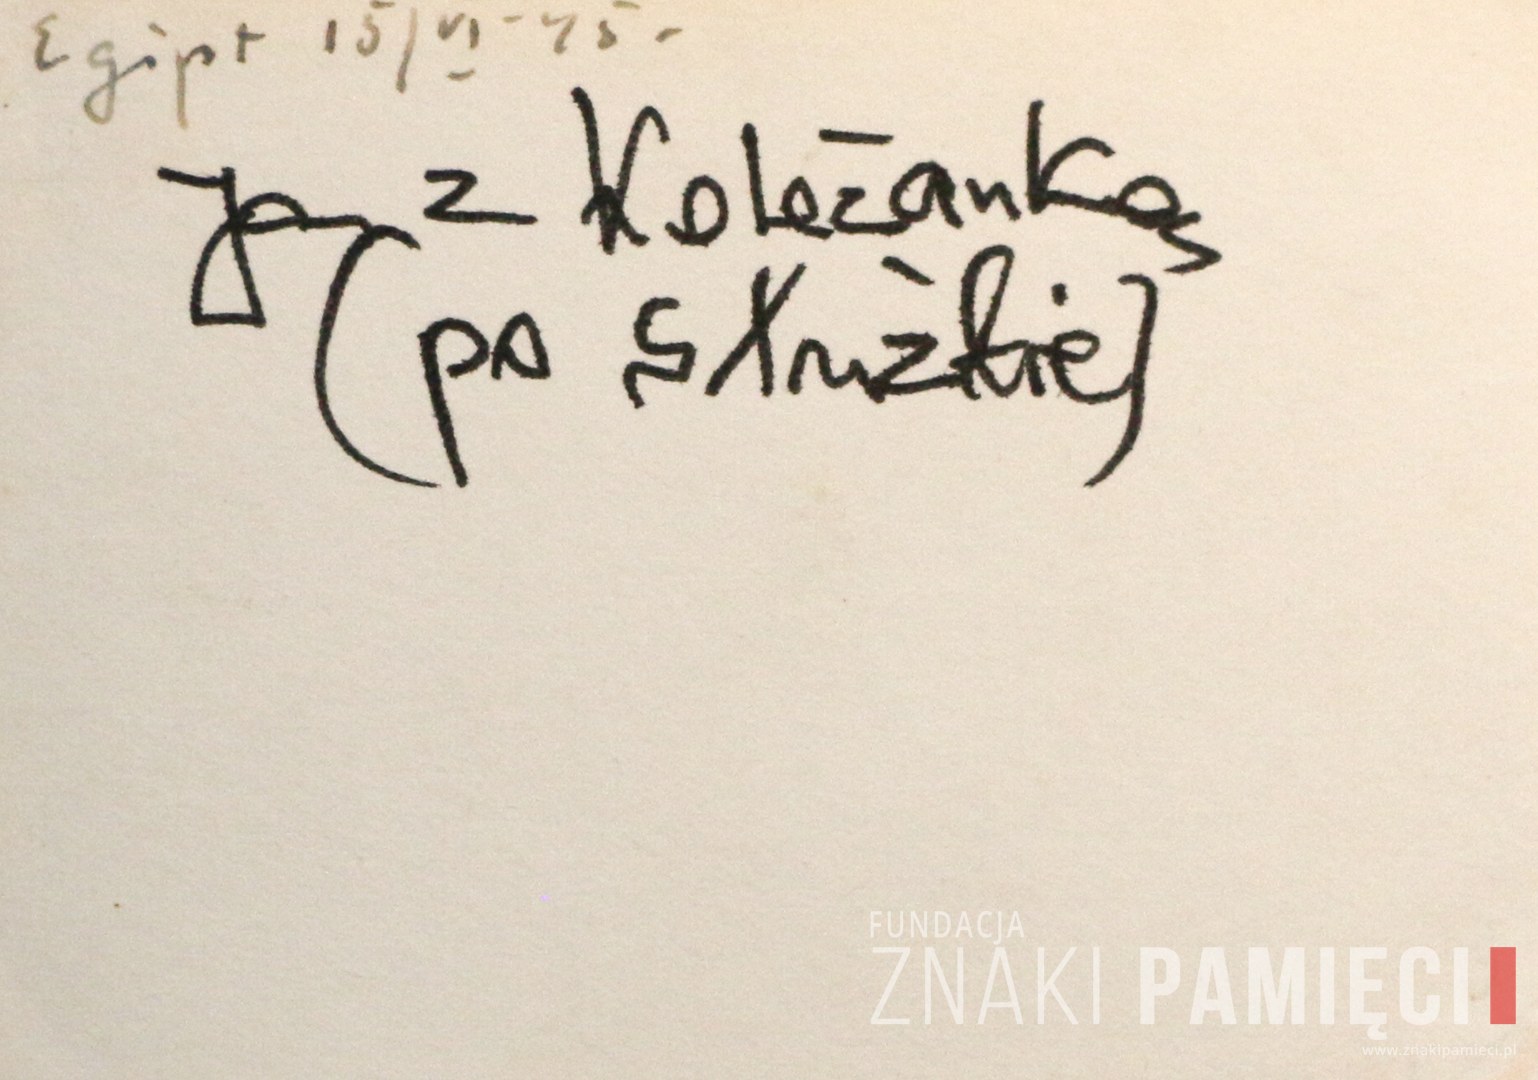 Egipt 15/VI-45-
Ja z Koleżanką
(po służbie)
FUNDACJA
ZNAKI PAMIĘCI
www.znakipamieci.pl